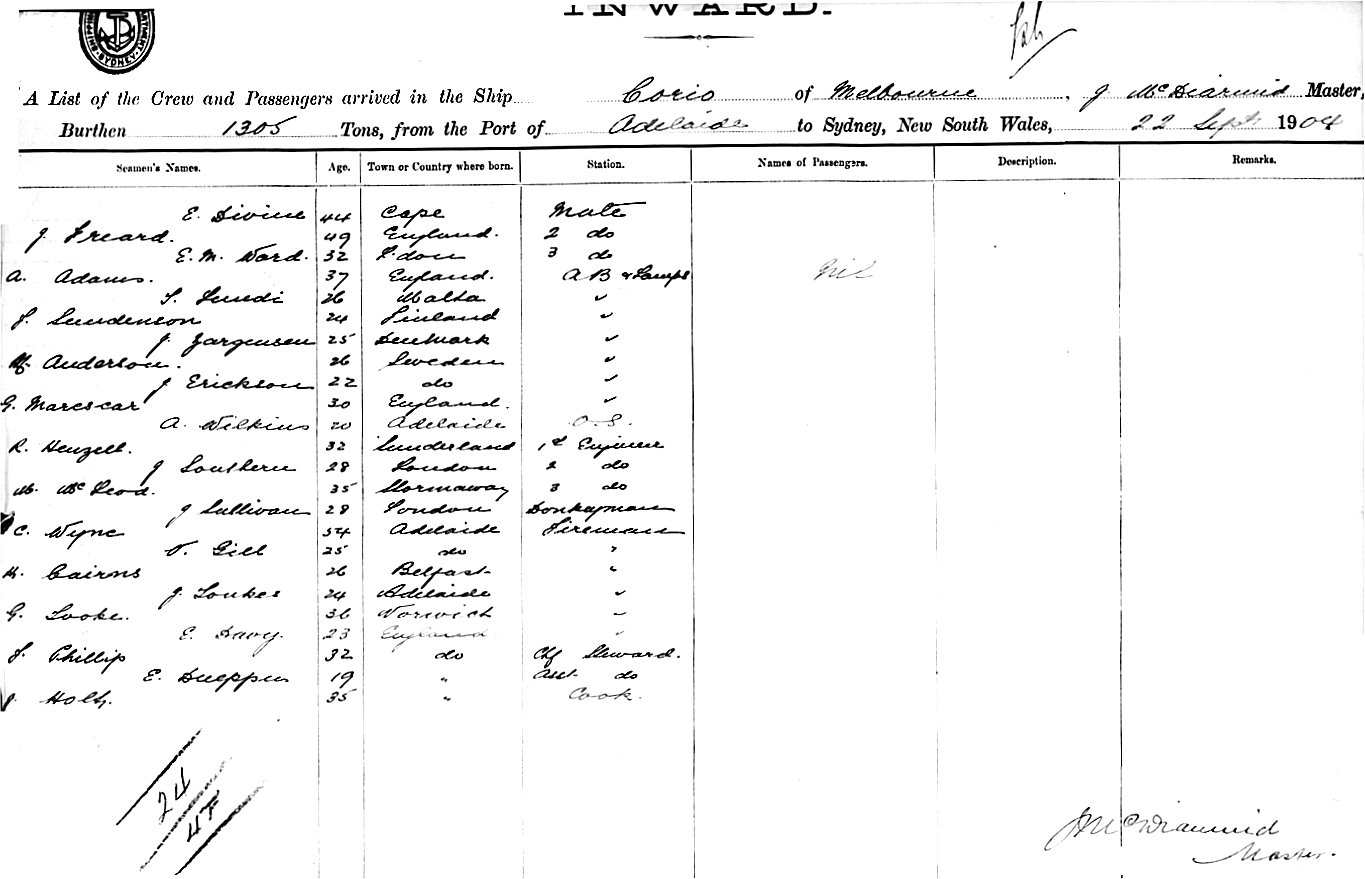 INWARD.
SHIPPING DEPARTMENT SYDNEY
A List of the Crew and Passengers arrived in the Ship Corio of Melbourne, J McDiarmid Master,
Burthen 1305 Tons, from the Port of Adelaide to Sydney, New South Wales, 22 Sept 1904
Seamen's Names. Age. Town or Country where born. Station. Names of Passengers. Description. Remarks.
E. Divine 44 Cape Mate
J Freard. 49 England. 2 do
E. M. Ward. 32 Ldon 3 do
A. Adams. 37 England. A B & Lamps Nil
26 Malta "
24 Finland "
J Jorgensen 25 Denmark "
Anderson. 26 Sweden "
J Erickson 22 do "
G. Marescar 30 England. "
A. Wilkins 20 Adelaide O.S.
R. Henzell. 32 Sunderland 1st Engineer
J Southern 28 London 2 do
M. McLeod. 35 Stornaway 3 do
J Sullivan 28 London Donkeyman
C. Wync 54 Adelaide Fireman
Gill 25 do "
H. Cairns 26 Belfast "
J. Loukes 24 Adelaide "
G. Looke. 36 Norwich "
E. Davy. 23 England "
Phillip 32 do Chf Steward.
E. Dueppen 19 " Asst do
J. Holtz. 35 " Cook.
24
47
J McDiarmid
Master.